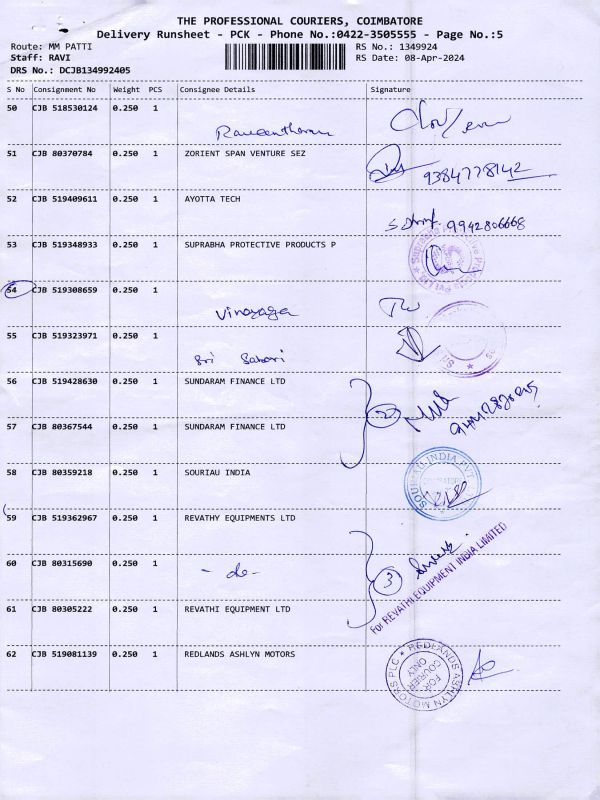 THE PROFESSIONAL COURIERS, COIMBATORE
Delivery Runsheet - PCK - Phone No.:0422-3505555 - Page No.:5
Route: MM PATTI RS No.: 1349924
Staff: RAVI RS Date: 08-Apr-2024
DRS No.: DCJB134992405
S No Consignment No Weight PCS Consignee Details Signature
50 CJB 518530124 0.250 1
51 CJB 80370784 0.250 1 ZORIENT SPAN VENTURE SEZ
9384778142
52 CJB 519409611 0.250 1 AYOTTA TECH
9942806668
53 CJB 519348933 0.250 1 SUPRABHA PROTECTIVE PRODUCTS P
54 CJB 519308659 0.250 1
Vinayaga
55 CJB 519323971 0.250 1
Sri Sabari
56 CJB 519428630 0.250 1 SUNDARAM FINANCE LTD
2
57 CJB 80367544 0.250 1 SUNDARAM FINANCE LTD
58 CJB 80359218 0.250 1 SOURIAU INDIA
SOURIAU INDIA PVT
59 CJB 519362967 0.250 1 REVATHY EQUIPMENTS LTD
60 CJB 80315690 0.250 1
- do -
3
For REVATHI EQUIPMENT INDIA LIMITED
61 CJB 80305222 0.250 1 REVATHI EQUIPMENT LTD
62 CJB 519081139 0.250 1 REDLANDS ASHLYN MOTORS
REDLANDS ASHLYN MOTORS PLC
FOR
COURIER
ONLY